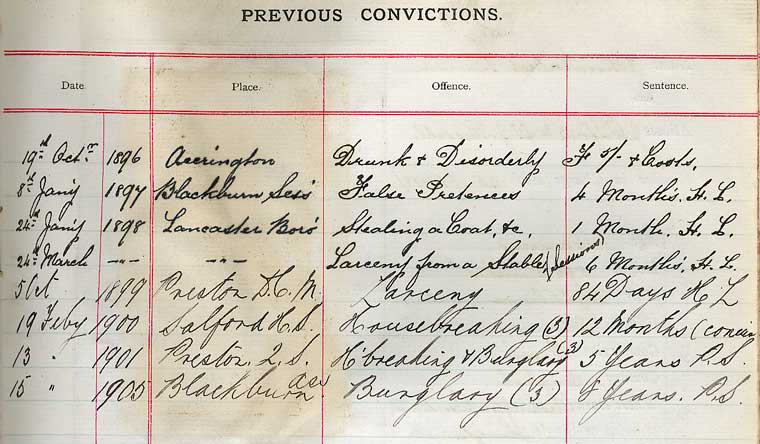 PREVIOUS CONVICTIONS.
Date. Place. Offence. Sentence.
19th Octr 1896 Accrington Drunk & Disorderly F 5/- & Costs.
8th Jany 1897 Blackburn Sess False Pretences 4 Months. H. L.
24th Jany 1898 Lancaster Boro' Stealing a Coat, &c. 1 Month. H. L.
24th March -"- -"- Larceny from a Stable (Sessions) 6 Months. H. L.
5 Oct 1899 Preston D.C.M. Larceny 84 Days H L
19 Feby 1900 Salford H.S. Housebreaking (3) 12 Months (concur
13 " 1901 Preston, Q.S. H'breaking & Burglary (3) 5 Years P.S.
15 " 1905 Blackburn ass Burglary (3) Years. P.S.